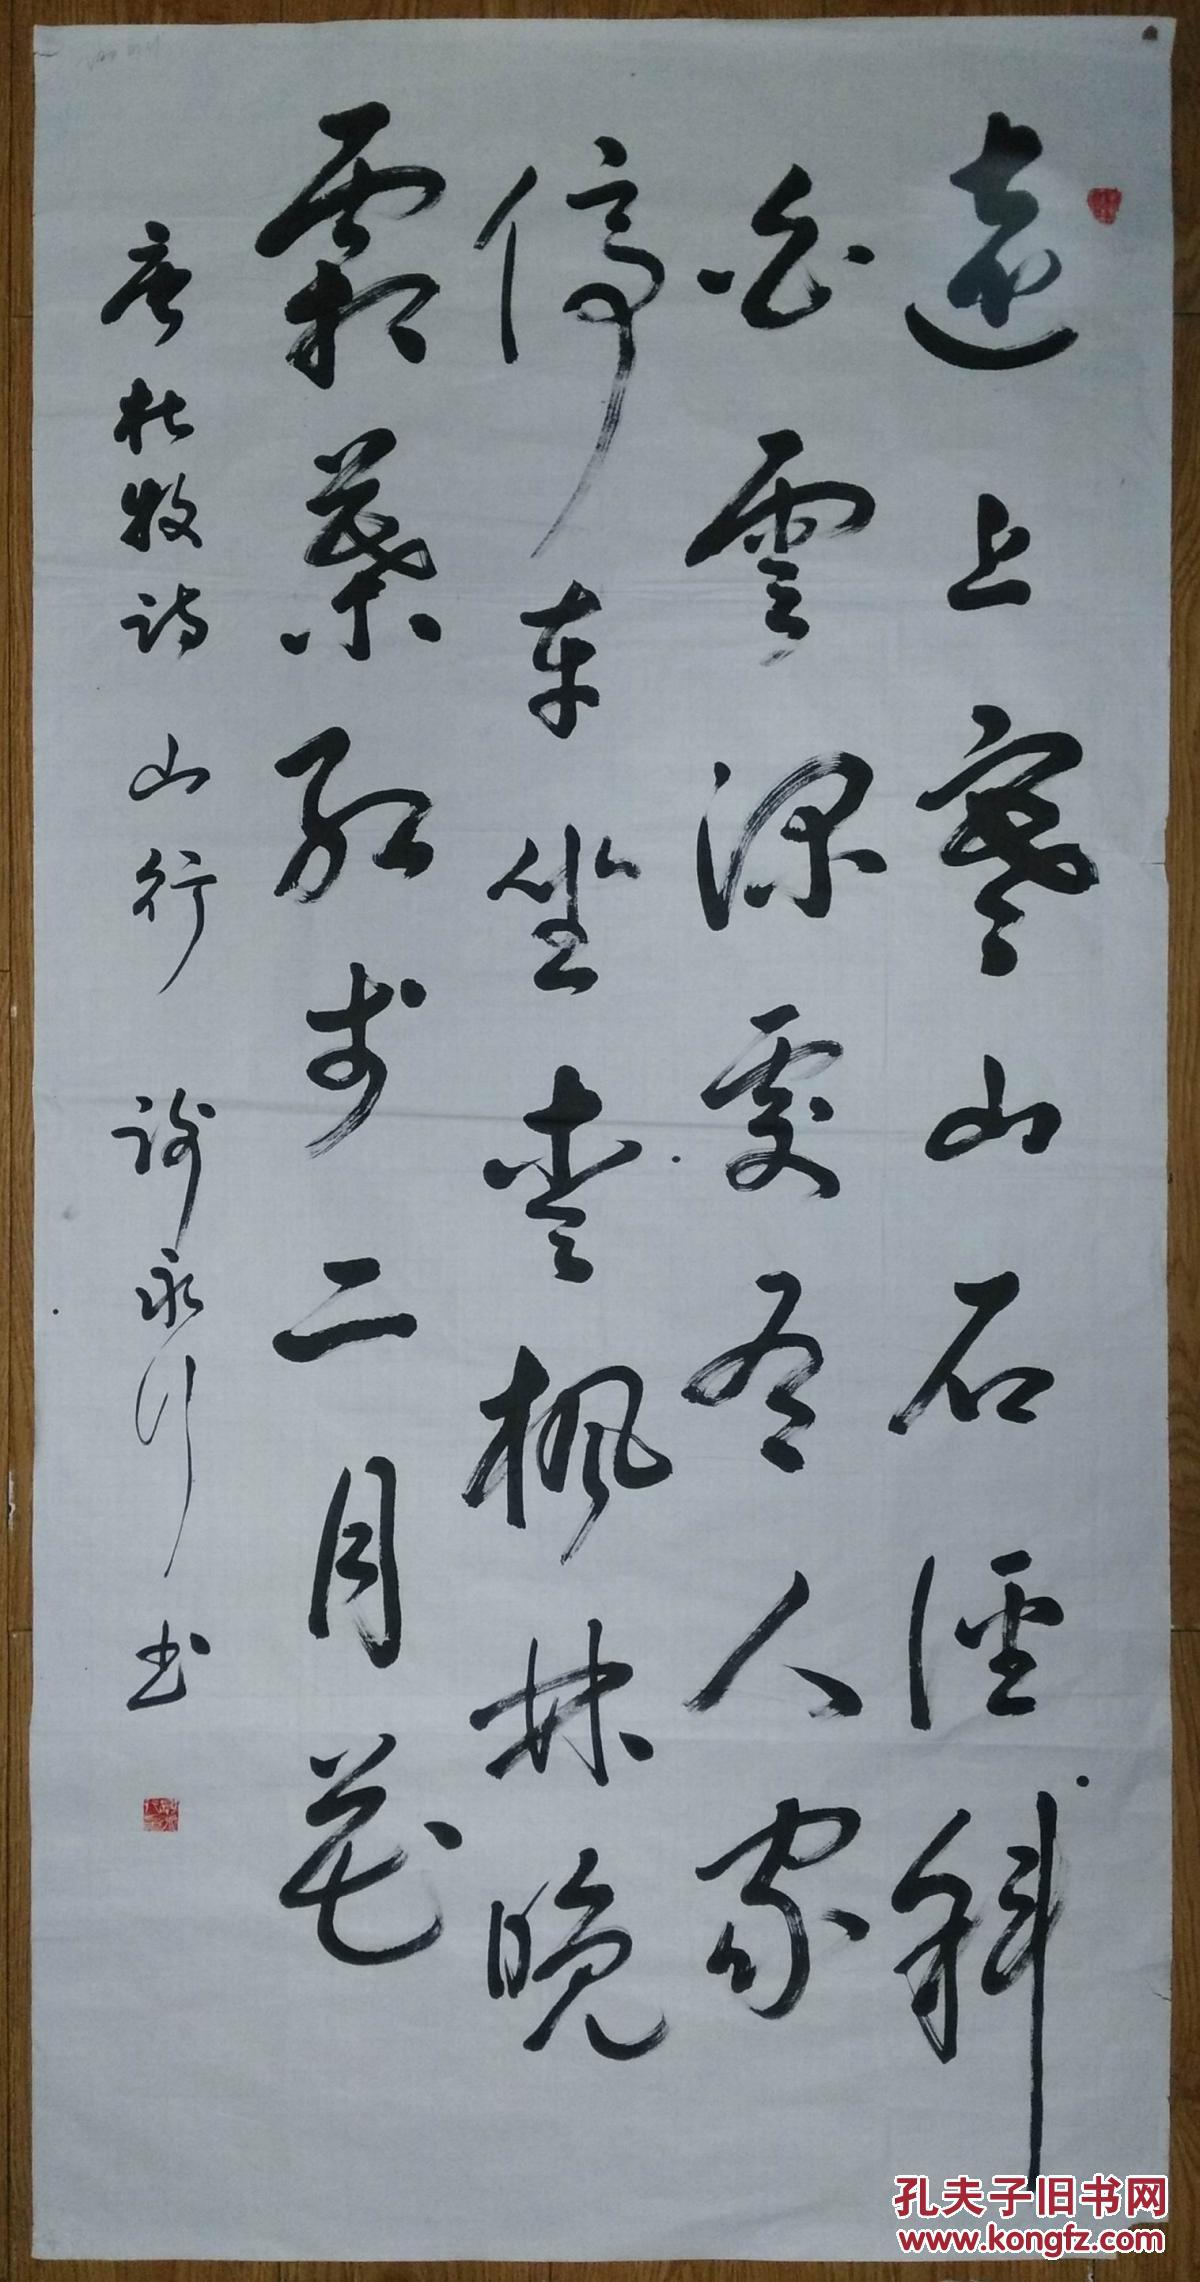 遠上寒山石徑斜
白雲深處有人家
停車坐愛楓林晚
霜葉紅於二月花
唐杜牧詩山行 謝永行书
孔夫子旧书网
www.kongfz.com